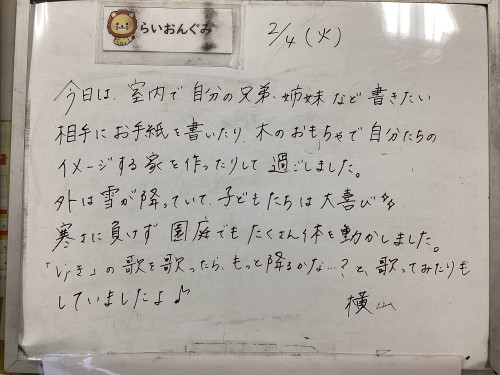 らいおんぐみ
2/4(火)
今日は、室内で自分の兄弟、姉妹など書きたい
相手にお手紙を書いたり、木のおもちゃで自分たちの
イメージする家を作ったりして過ごしました。
外は雪が降っていて、子どもたちは大喜び
寒さに負けず園庭でもたくさん体を動かしました。
「ゆき」の歌を歌ったら、もっと降るかな…?と、歌ってみたりも
していましたよ♪
横山